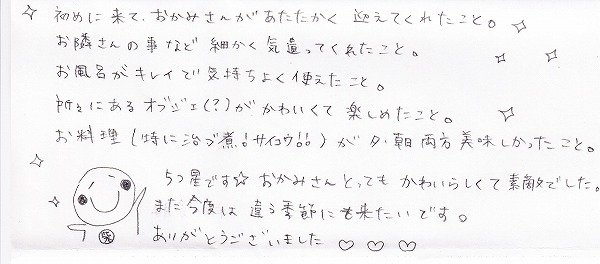 初めに来て、おかみさんがあたたかく 迎えてくれたこと。
お隣さんの事など 細かく 気遣ってくれたこと。
お風呂がキレイで気持ちよく使えたこと。
所々にあるオブジェ(?)がかわいくて 楽しめたこと。
お料理(特に治ブ煮!サイコウ!!)が夕、朝両方美味しかったこと。
5つ星です☆ おかみさんとっても かわいらしくて素敵でした。
また今度は 違う季節にも来たいです。
ありがとうございました ♡ ♡ ♡